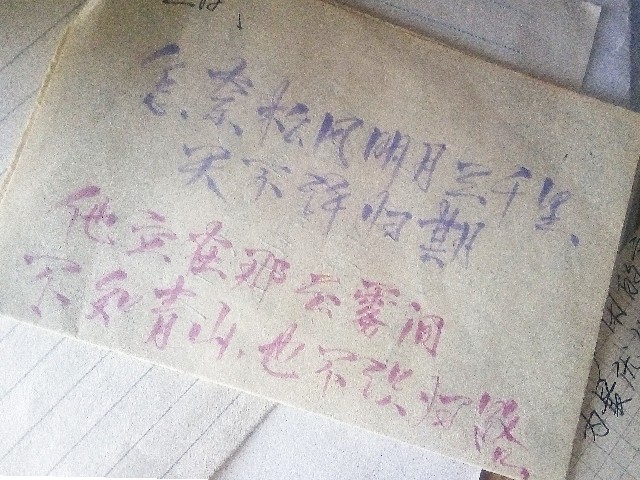 怎奈松风明月三千里、
天不许归期
他立在那云雾间
不知青山、也不识归路